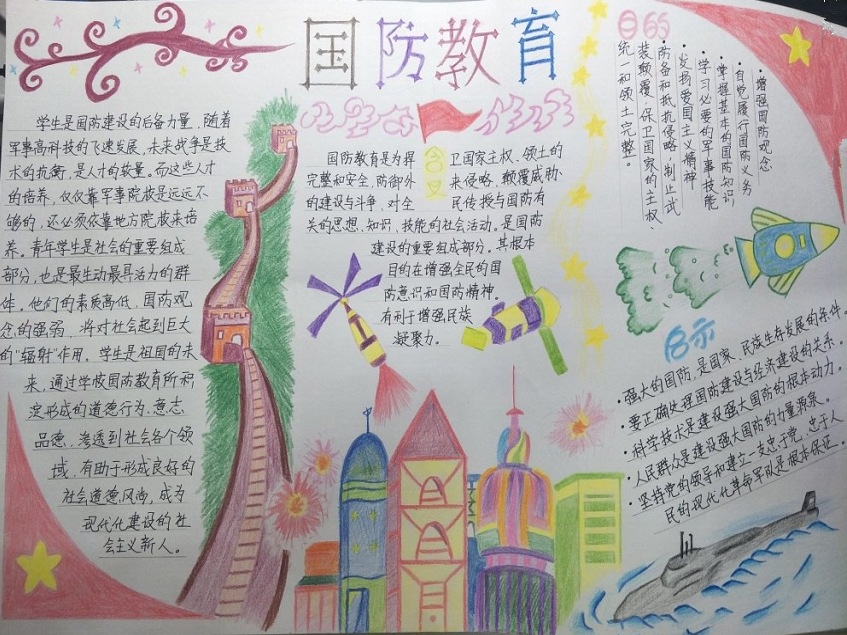 国防教育
学生是国防建设的后备力量，随着
军事高科技的飞速发展，未来战争是技
术的抗衡，是人才的较量。而这些人才
的培养，仅仅靠军事院校是远远不
够的，还必须依靠地方院校来培
养。青年学生是社会的重要组成
部分，也是最生动最具活力的群
体。他们的素质高低、国防观
念的强弱，将对社会起到巨大
的“辐射”作用。学生是祖国的未
来，通过学校国防教育所积
淀形成的道德行为、意志
品德，渗透到社会各个领
域，有助于形成良好的
社会道德风尚，成为
现代化建设的社
会主义新人。
含义
国防教育是为捍卫国家主权、领土的
完整和安全，防御外来侵略、颠覆威胁、
的建设与斗争，对全民传授与国防有
关的思想、知识、技能的社会活动。是国防
建设的重要组成部分，其根本
目的在增强全民的国
防意识和国防精神。
有利于增强民族
凝聚力。
目的
·增强国防观念
·自觉履行国防义务
·掌握基本的国防知识
·学习必要的军事技能
·发扬爱国主义精神
·防备和抵抗侵略，制止武
装颠覆，保卫国家的主权、
统一和领土完整。
启示
·强大的国防，是国家、民族生存发展的条件。
·要正确处理国防建设与经济建设的关系。
·科学技术是建设强大国防的根本动力。
·人民群众是建设强大国防的力量源泉。
·坚持党的领导和建立一支忠于党、忠于人
民的现代化革命军队是根本保证。